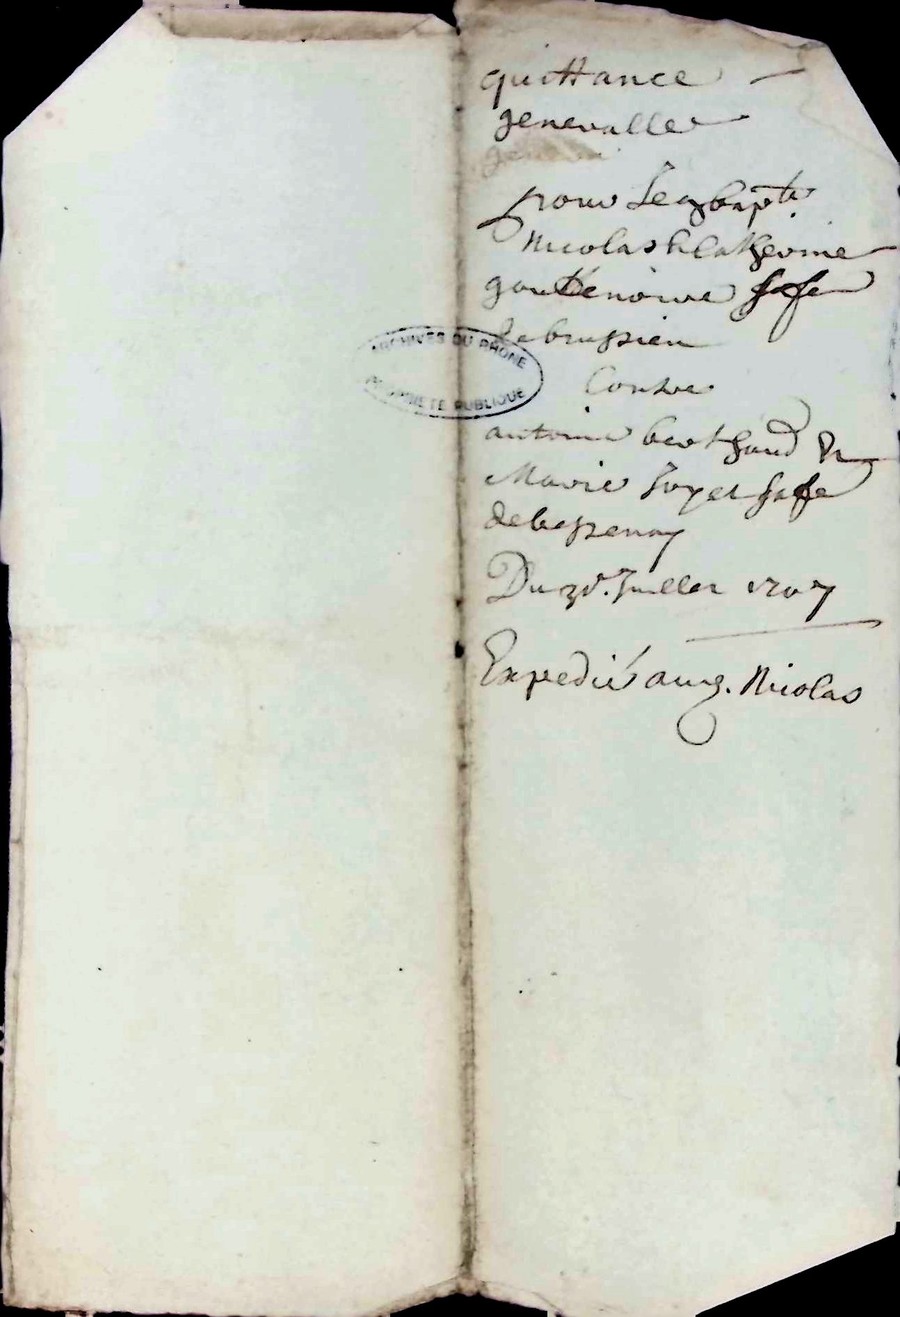 quittance
generalle
pour Jean bapte
Nicolas & Catherine
gouttenoire sa fe
de brussieu
Contre
antoine berthaud &
Marie Joyet sa fe
de bessenay
Du 30e. Juillet 1707
Expedié aud. Nicolas
ARCHIVES DU RHONE
PROPRIETE PUBLIQUE